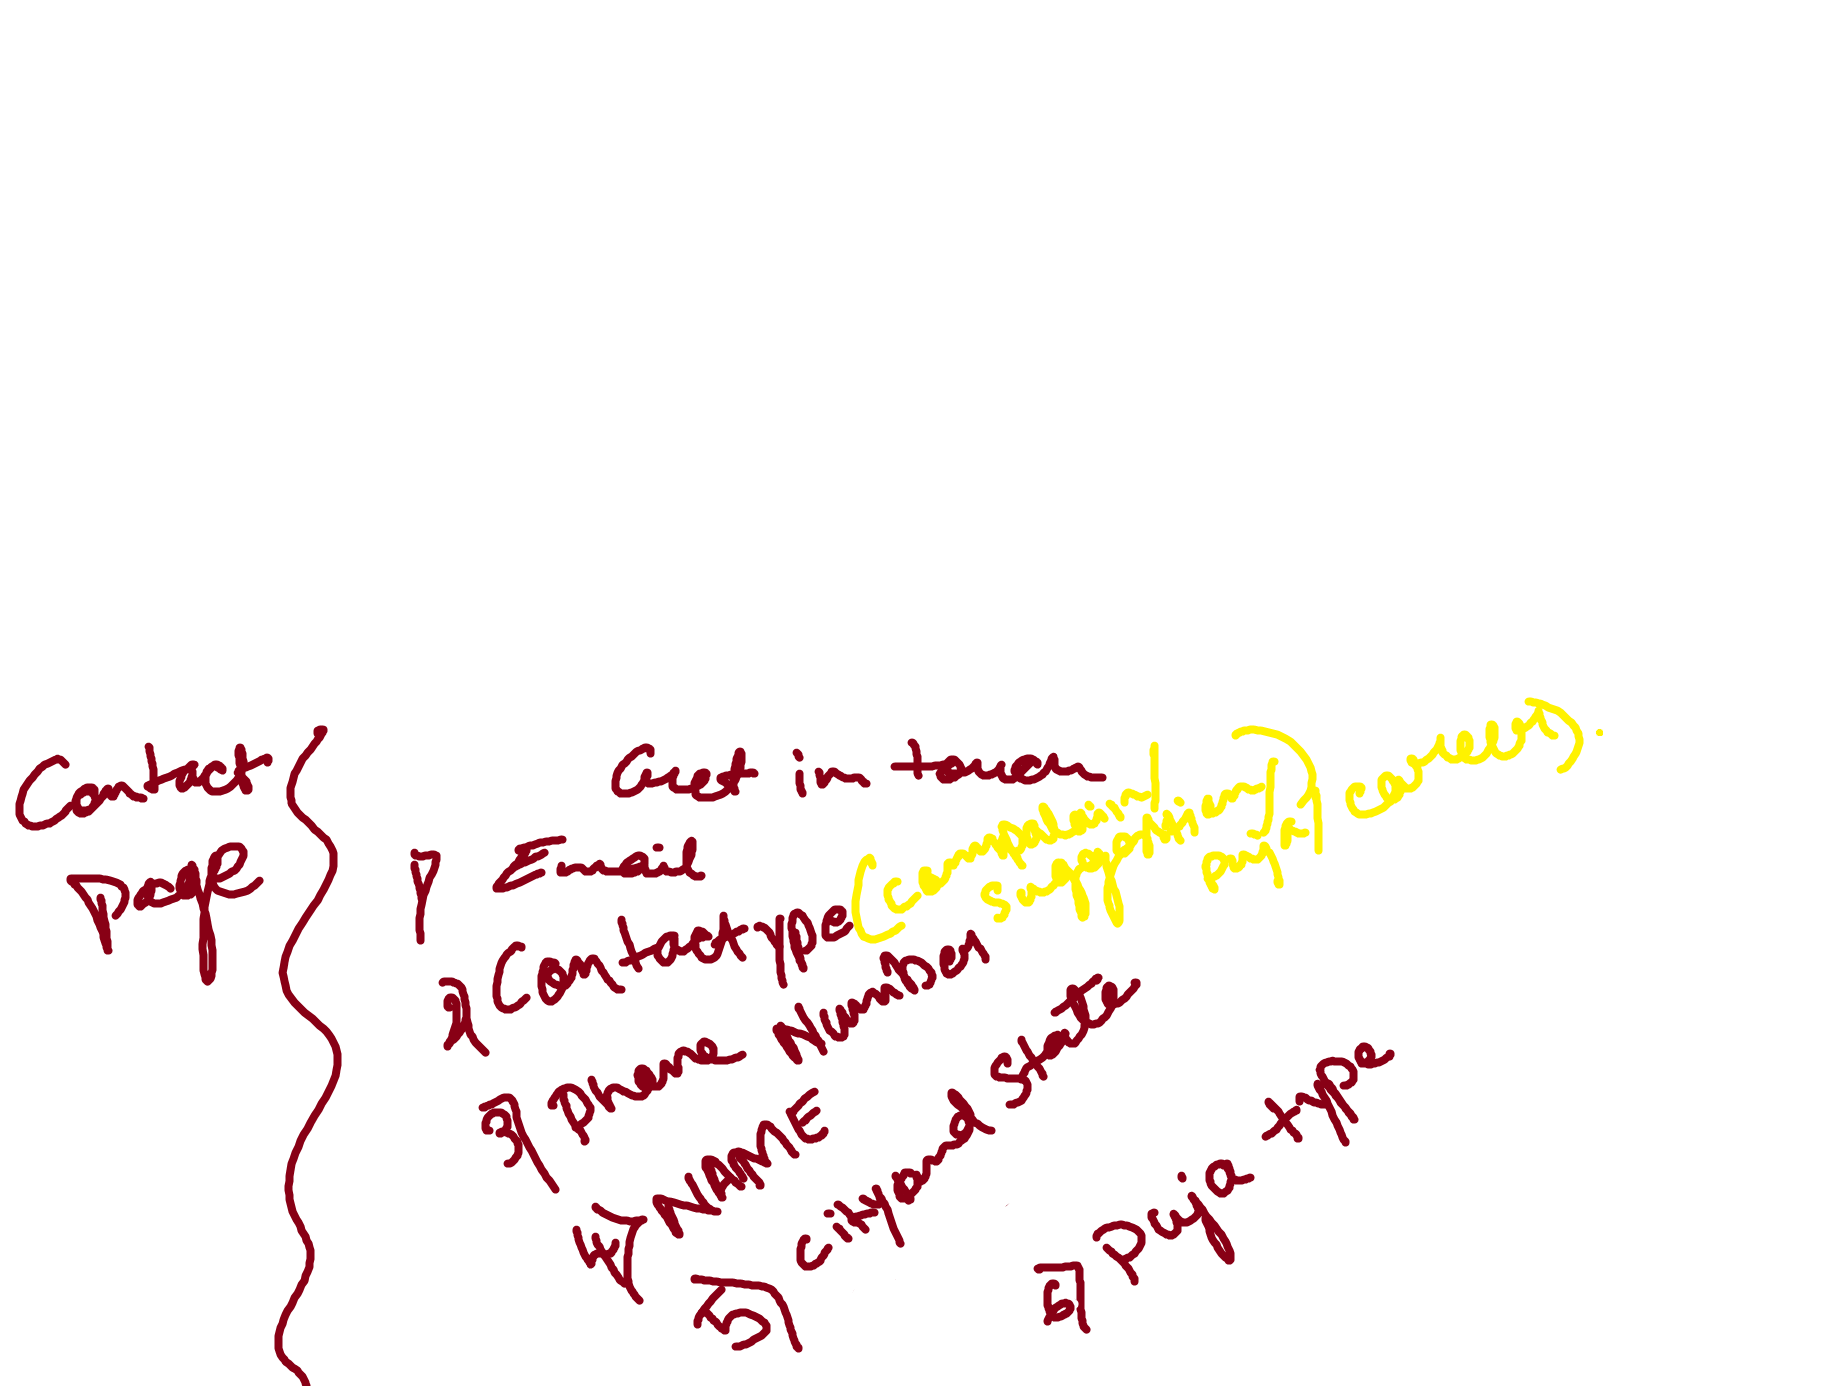 Contact
Page
Get in touch
1) Email
2) Contactype (complaint/
suggestion/
puja) careers).
3) Phone Number
4) NAME
5) city and state
6) Puja type